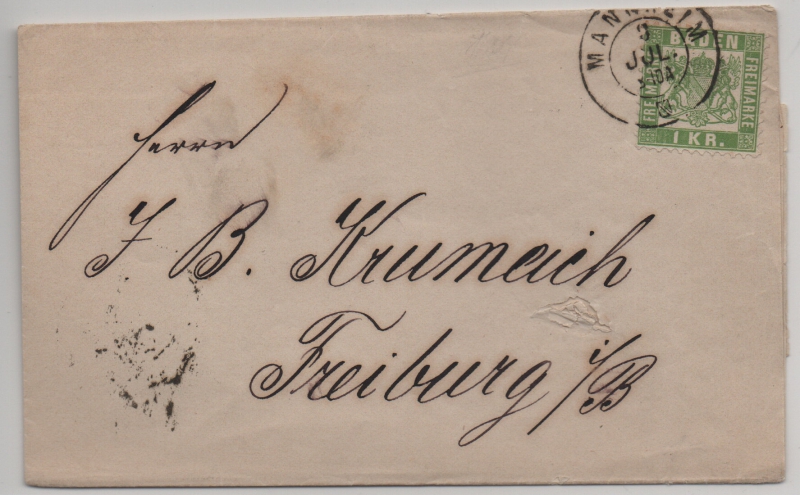 MANNHEIM
3
JUL.
BADEN
FREIMARKE
FREIMARKE
1 KR.
Herrn
J. B. Krumeich
Freiburg i/B